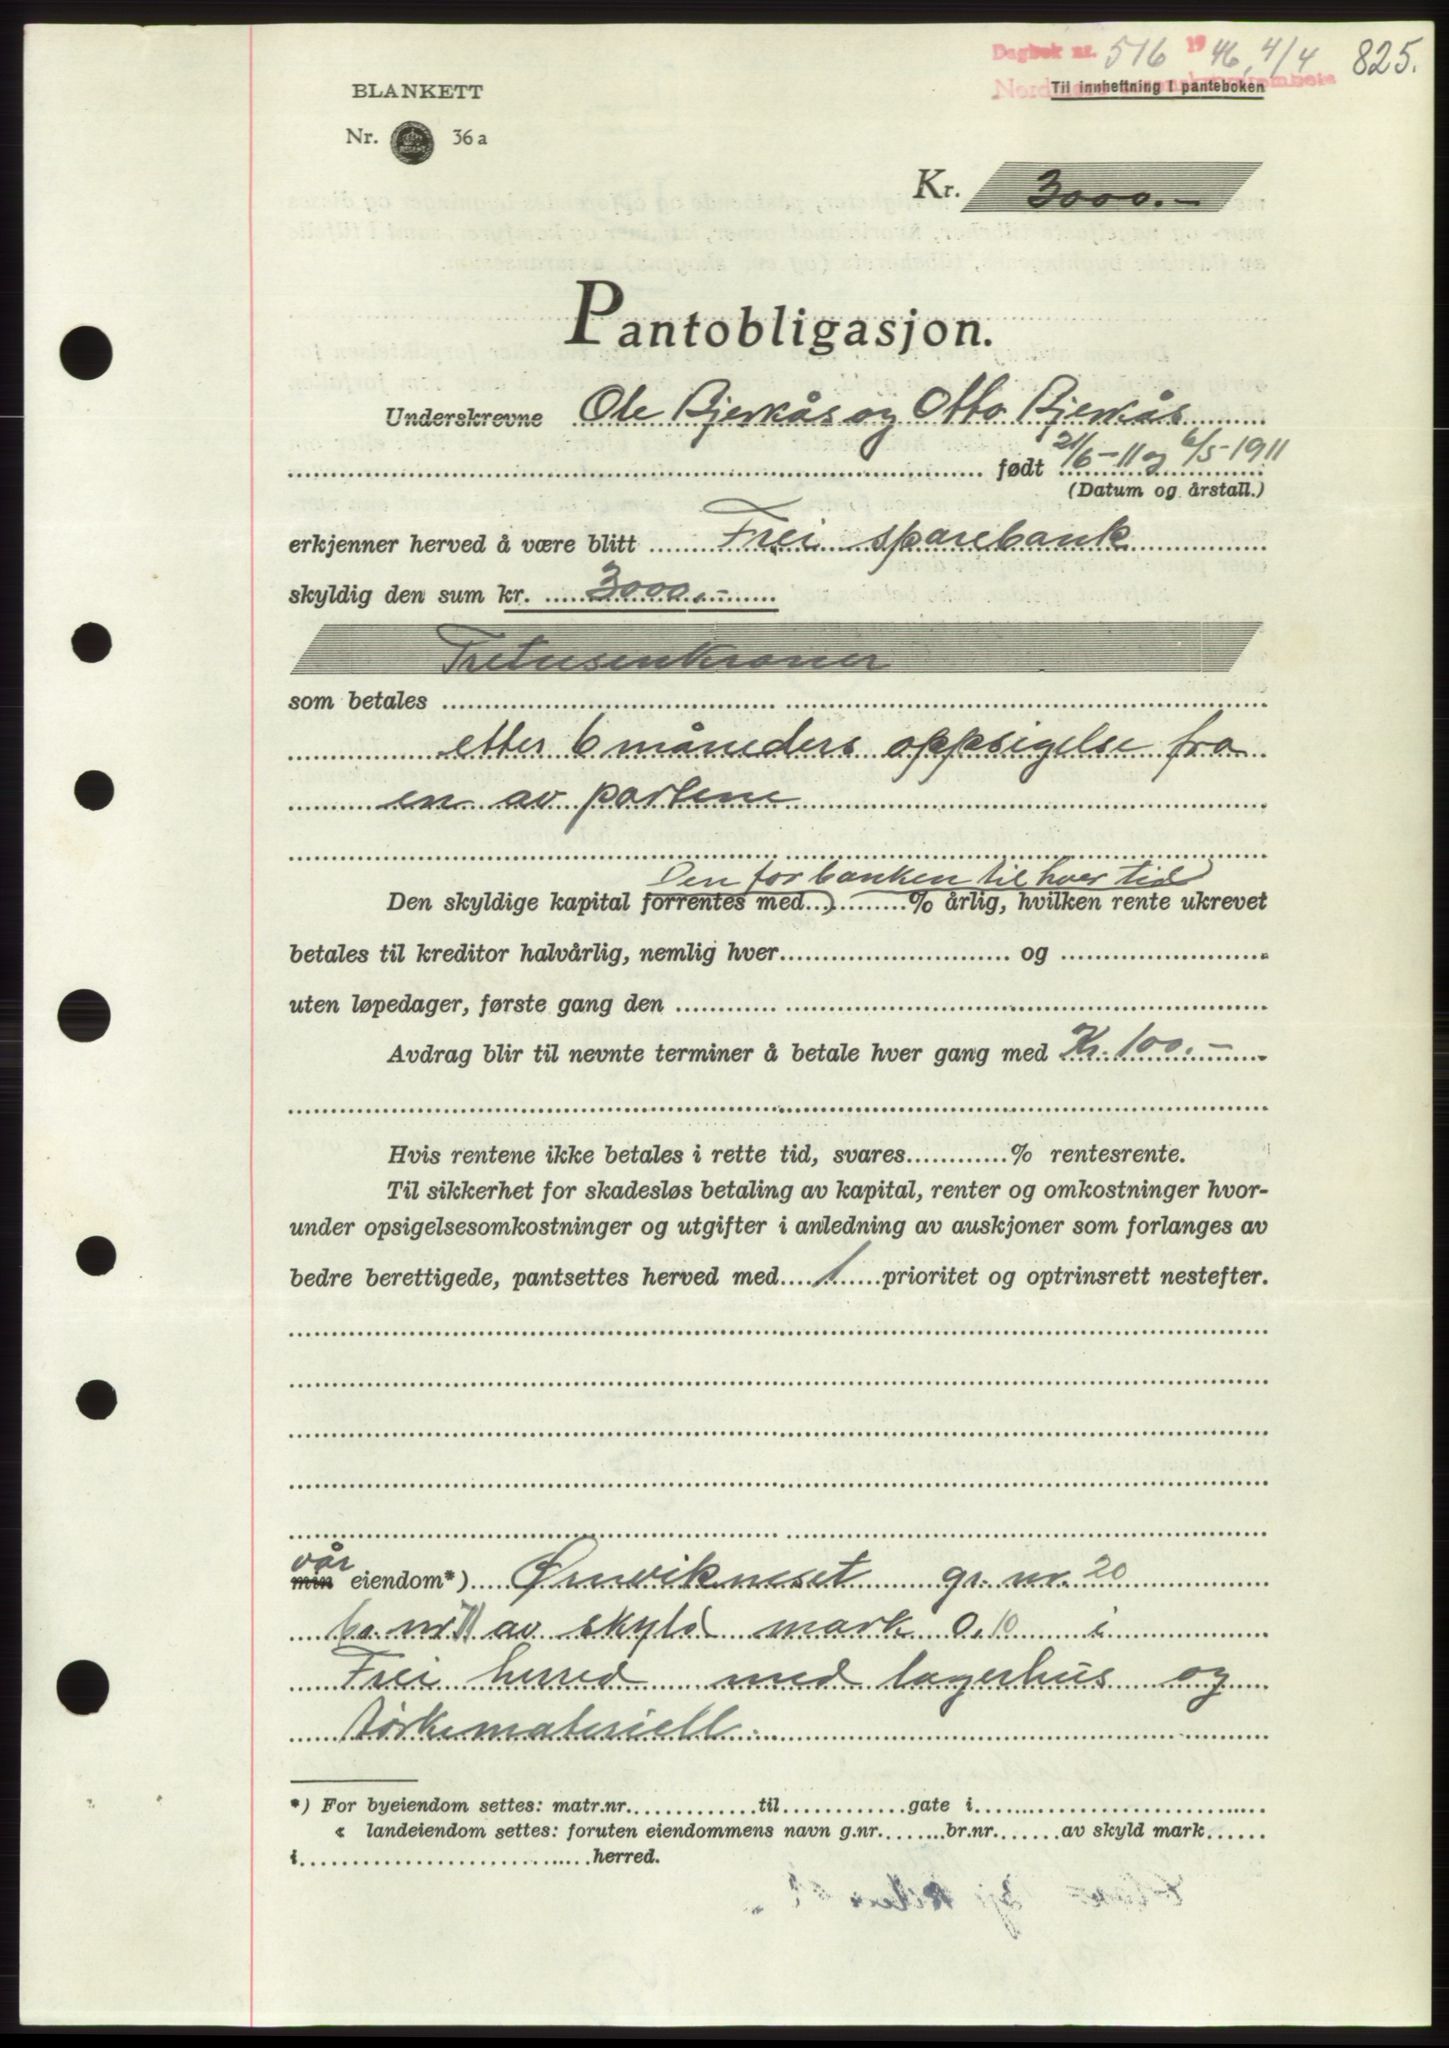 Dagbok nr. 516 1946, 4/4 825.
Til innheftning i panteboken
BLANKETT
Nr. 36 a
Kr. 3000.-
Pantobligasjon.
Underskrevne Ole Bjerkås og Otto Bjerkås
født 21/6-11 og 6/5-1911
(Datum og årstall.)
erkjenner herved å være blitt Frei sparebank
skyldig den sum kr. 3000.-
Tretusenkroner
som betales
etter 6 måneders oppsigelse fra
en av partene
Den for banken til hver tid
Den skyldige kapital forrentes med % årlig, hvilken rente ukrevet
betales til kreditor halvårlig, nemlig hver og
uten løpedager, første gang den
Avdrag blir til nevnte terminer å betale hver gang med Kr. 100.-
Hvis rentene ikke betales i rette tid, svares % rentesrente.
Til sikkerhet for skadesløs betaling av kapital, renter og omkostninger hvor-
under opsigelsesomkostninger og utgifter i anledning av auskjoner som forlanges av
bedre berettigede, pantsettes herved med 1 prioritet og optrinsrett nestefter.
vår
min eiendom*) Ørnvikneset gr. nr. 20
br. nr. av skyld mark 0.10 i
Frei herred med lagerhus og
tørkemateriell.
*) For byeiendom settes: matr.nr. til gate i
« landeiendom settes: foruten eiendommens navn g.nr. br.nr. av skyld mark
i herred.